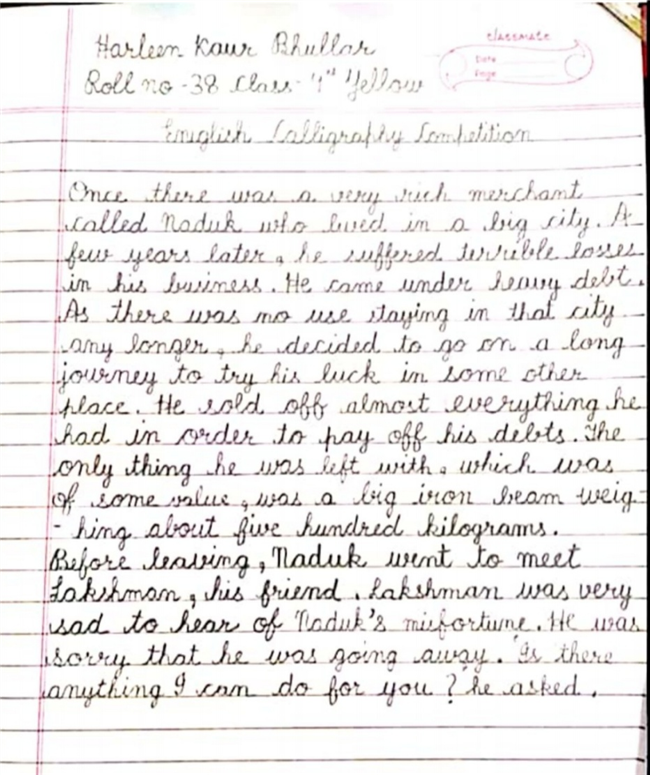 Harleen Kaur Bhullar
classmate
Date
Page
Roll no - 38 Class - 4th Yellow
English Calligraphy Competition
Once there was a very rich merchant
called Naduk who lived in a big city. A
few years later, he suffered terrible losses
in his business. He came under heavy debt.
As there was no use staying in that city
any longer, he decided to go on a long
journey to try his luck in some other
place. He sold off almost everything he
had in order to pay off his debts. The
only thing he was left with, which was
of some value, was a big iron beam weig-
- hing about five hundred kilograms.
Before leaving, Naduk went to meet
Lakshman, his friend. Lakshman was very
sad to hear of Naduk's misfortune. He was
sorry that he was going away. Is there
anything I can do for you? he asked.